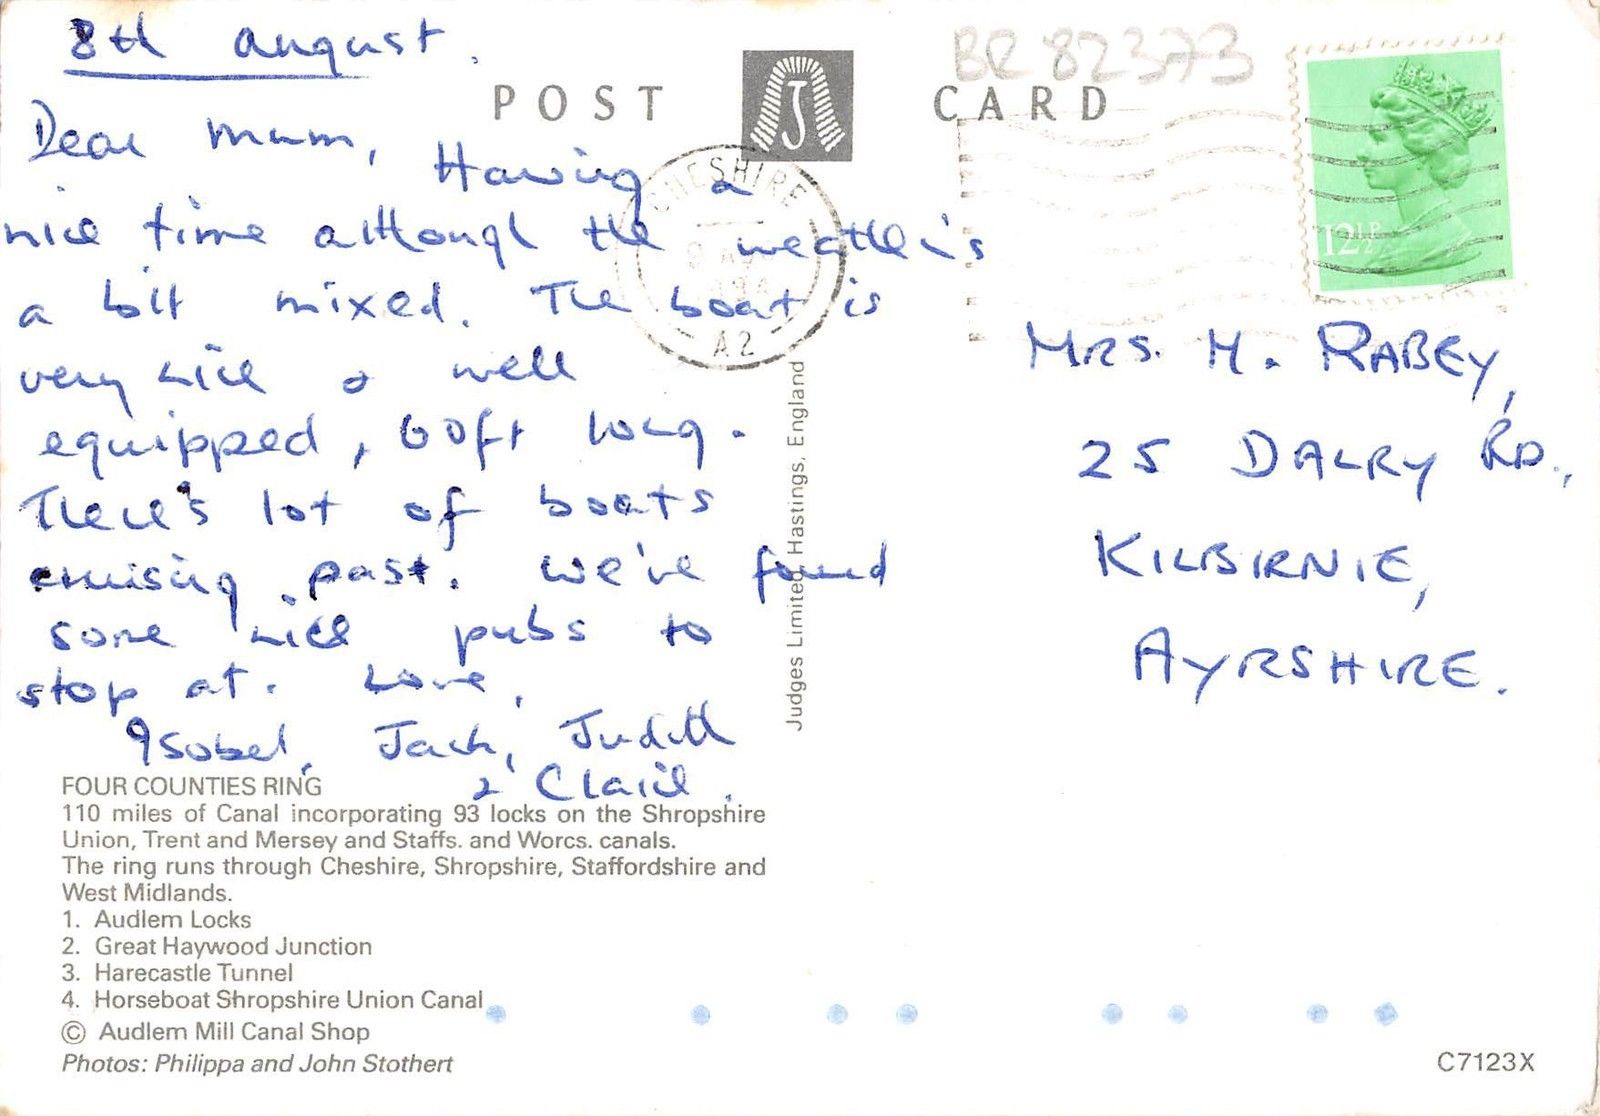 8th august.
Dear Mum, Having a
nice time although the weather's
a bit mixed. The boat is
very nice & well
equipped, 60ft long.
There's lot of boats
cruising past. We've found
some nice pubs to
stop at. Love,
Isobel, Jack, Judith
& Claire.
POST CARD
J
BR 82373
CHESHIRE
A2
12½P
MRS. M. RABEY,
25 DALRY RD.,
KILBIRNIE,
AYRSHIRE.
Judges Limited, Hastings, England
FOUR COUNTIES RING
110 miles of Canal incorporating 93 locks on the Shropshire
Union, Trent and Mersey and Staffs. and Worcs. canals.
The ring runs through Cheshire, Shropshire, Staffordshire and
West Midlands.
1. Audlem Locks
2. Great Haywood Junction
3. Harecastle Tunnel
4. Horseboat Shropshire Union Canal
© Audlem Mill Canal Shop
Photos: Philippa and John Stothert
C7123X